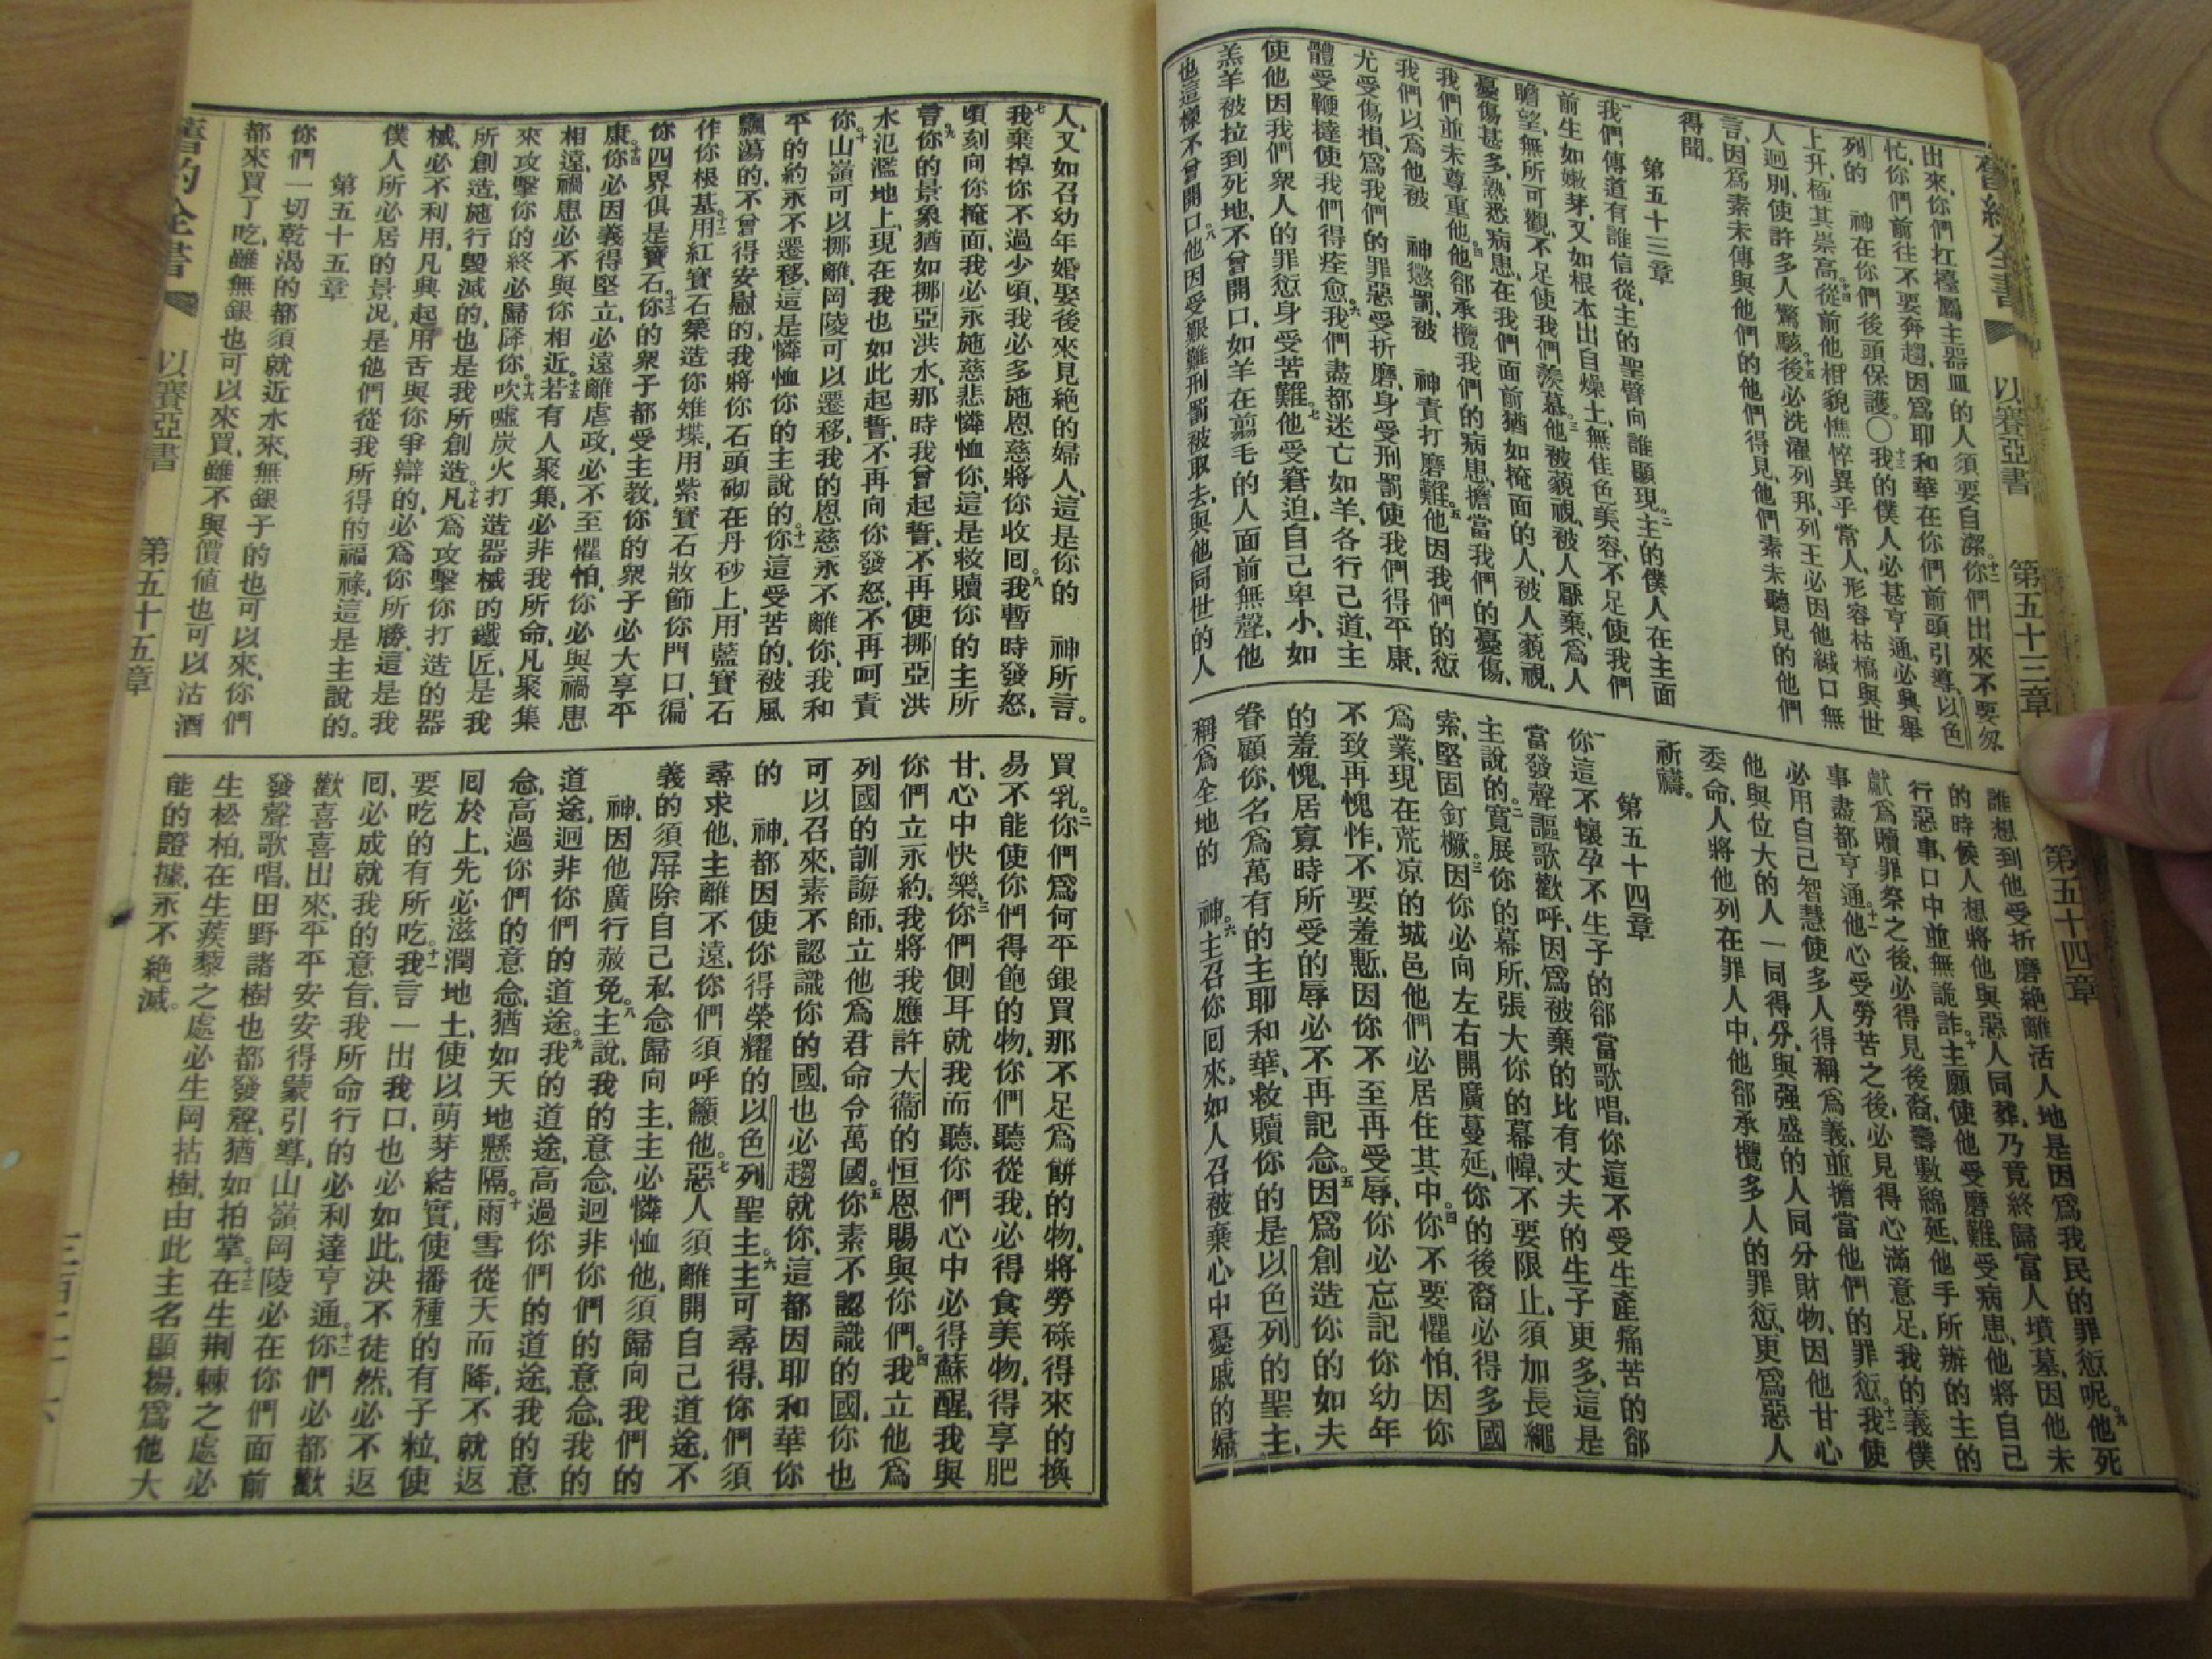 舊約全書 以賽亞書 第五十三章 第五十四章
出來、你們扛擡屬主器皿的人、須要自潔。十二你們出來不要怱
忙、你們前往不要奔趨、因爲耶和華在你們前頭引導、以色
列的 神在你們後頭保護。〇十三我的僕人必甚亨通、必興舉
上升、極其崇高。十四從前他相貌憔悴異乎常人、形容枯槁與世
人迥別、使許多人驚駭、十五後必洗濯列邦、列王必因他緘口無
言、因爲素未傳與他們的他們得見、他們素未聽見的他們
得聞。
第五十三章
一我們傳道有誰信從、主的聖臂向誰顯現。二主的僕人在主面
前生如嫩芽、又如根本出自燥土、無佳色美容、不足使我們
瞻望、無所可觀、不足使我們羨慕。三他被藐視、被人厭棄、爲人
憂傷甚多、熟悉病患、在我們面前猶如掩面的人、被人藐視、
我們並未尊重他。四他卻承攬我們的病患、擔當我們的憂傷、
我們以爲他被 神懲罰、被 神責打磨難。五他因我們的愆
尤受傷損、爲我們的罪惡受折磨、身受刑罰使我們得平康、
體受鞭撻使我們得痊愈。六我們盡都迷亡如羊、各行己道、主
使他因我們衆人的罪愆身受苦難。七他受窘迫、自己卑小、如
羔羊被拉到死地、不曾開口、如羊在剪毛的人面前無聲、他
也這樣不曾開口。八他因受艱難刑罰被取去、與他同世的人
誰想到他受折磨絶離活人地是因爲我民的罪愆呢。九他死
的時候人想將他與惡人同葬、乃竟終歸富人墳墓、因他未
行惡事、口中並無詭詐。十主願使他受磨難、受病患、他將自己
獻爲贖罪祭之後、必得見後裔、壽數綿延、他手所辦的主的
事盡都亨通。十一他心受勞苦之後、必見得心滿意足、我的義僕
必用自己智慧使多人得稱爲義、並擔當他們的罪愆。十二我使
他與位大的人一同得分、與强盛的人同分財物、因他甘心
委命、人將他列在罪人中、他卻承攬多人的罪愆、更爲惡人
祈禱。
第五十四章
一你這不懷孕不生子的卻當歌唱、你這不受生產痛苦的卻
當發聲謳歌歡呼、因爲被棄的比有丈夫的生子更多、這是
主說的。二寬展你的幕所、張大你的幕幃、不要限止、須加長繩
索、堅固釘橛。三因你必向左右開廣蔓延、你的後裔必得多國
爲業、現在荒凉的城邑他們必居住其中。四你不要懼怕、因你
不致再愧怍、不要羞慙、因你不至再受辱、你必忘記你幼年
的羞愧、居寡時所受的辱必不再記念。五因爲創造你的如夫
眷顧你、名爲萬有的主耶和華、救贖你的是以色列的聖主、
稱爲全地的 神。六主召你回來、如人召被棄心中憂戚的婦
人、又如召幼年婚娶後來見絶的婦人、這是你的 神所言。
七我棄掉你不過少頃、我必多施恩慈將你收回。八我暫時發怒、
頃刻向你掩面、我必永施慈悲憐恤你、這是救贖你的主所
言。九你的景象猶如挪亞洪水、那時我曾起誓、不再使挪亞洪
水氾濫地上、現在我也如此起誓、不再向你發怒、不再呵責
你。十山嶺可以挪離、岡陵可以遷移、我的恩慈永不離你、我和
平的約永不遷移、這是憐恤你的主說的。十一你這受苦的、被風
飄蕩的、不曾得安慰的、我將你石頭砌在丹砂上、用藍寶石
作你根基。十二用紅寶石築造你雉堞、用紫寶石妝飾你門口、徧
你四界俱是寶石。十三你的衆子都受主教、你的衆子必大享平
康。十四你必因義得堅立、必遠離虐政、必不至懼怕、你必與禍患
相遠、禍患必不與你相近。十五若有人聚集、必非我所命、凡聚集
來攻擊你的終必歸降你。十六吹噓炭火打造器械的鐵匠、是我
所創造、施行毁滅的、也是我所創造。十七凡爲攻擊你打造的器
械、必不利用、凡興起用舌與你爭辯的、必爲你所勝、這是我
僕人所必居的景况、是他們從我所得的福祿、這是主說的。
第五十五章
你們一切乾渴的都須就近水來、無銀子的也可以來、你們
都來買了吃、雖無銀也可以來買、雖不與價値也可以沽酒
買乳。二你們爲何平銀買那不足爲餅的物、將勞碌得來的換
易不能使你們得飽的物、你們聽從我、必得食美物、得享肥
甘、心中快樂。三你們側耳就我而聽、你們心中必得蘇醒、我與
你們立永約、我將我應許大衞的恒恩賜與你們。四我立他爲
列國的訓誨師、立他爲君命令萬國。五你素不認識的國、你也
可以召來、素不認識你的國、也必趨就你、這都因耶和華你
的 神、都因使你得榮耀的以色列聖主。六主可尋得、你們須
尋求他、主離不遠、你們須呼籲他。七惡人須離開自己道途、不
義的須屏除自己私念歸向主、主必憐恤他、須歸向我們的
神、因他廣行赦免。八主說、我的意念、迥非你們的意念、我的
道途、迥非你們的道途。九我的道途、高過你們的道途、我的意
念、高過你們的意念、猶如天地懸隔。十雨雪從天而降、不就返
囘於上、先必滋潤地土、使以萌芽結實、使播種的有子粒、使
要吃的有所吃。十一我言一出我口、也必如此、決不徒然、必不返
囘、必成就我的意旨、我所命行的必利達亨通。十二你們必都歡
歡喜喜出來、平平安安得蒙引導、山嶺岡陵必在你們面前
發聲歌唱、田野諸樹也都發聲、猶如拍掌。十三在生荆棘之處必
生松柏、在生蒺藜之處必生岡拈樹、由此主名顯揚、爲他大
能的證據、永不絶滅。
舊約全書 以賽亞書 第五十五章